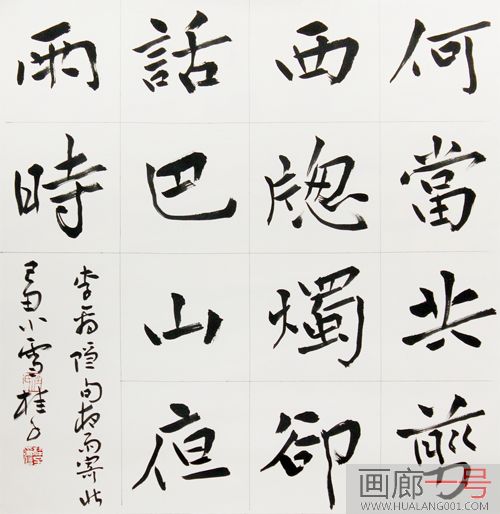 何當共翦
西牕燭卻
話巴山夜
雨時
李商隱句夜雨寄北
己丑小雪桂子
画廊一号
WWW.HUALANG001.COM